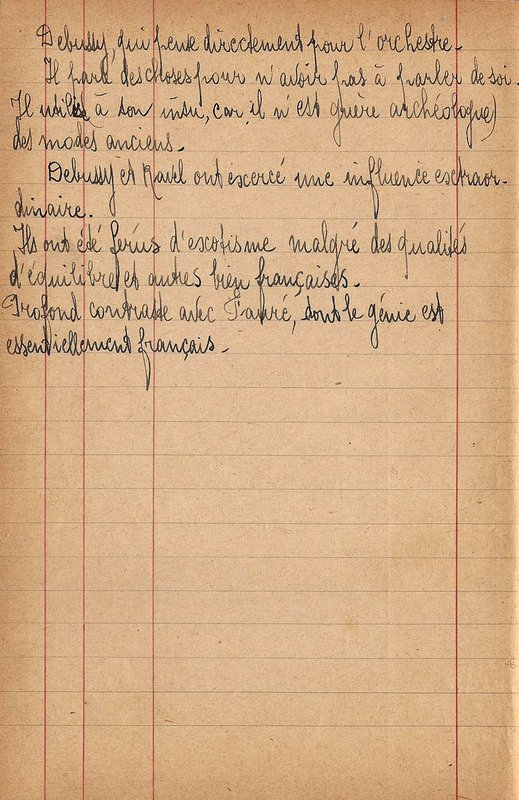 Debussy, qui pense directement pour l'orchestre.
Il parle des choses pour n'avoir pas à parler de soi.
Il utilise à son insu, car il n'est guère archéologue)
des modes anciens.
Debussy et Ravel ont excercé une influence esctraor-
dinaire.
Ils ont été férus d'escotisme malgré des qualités
d'équilibre et autres bien françaises.
Profond contraste avec Fauré, dont le génie est
essentiellement français.